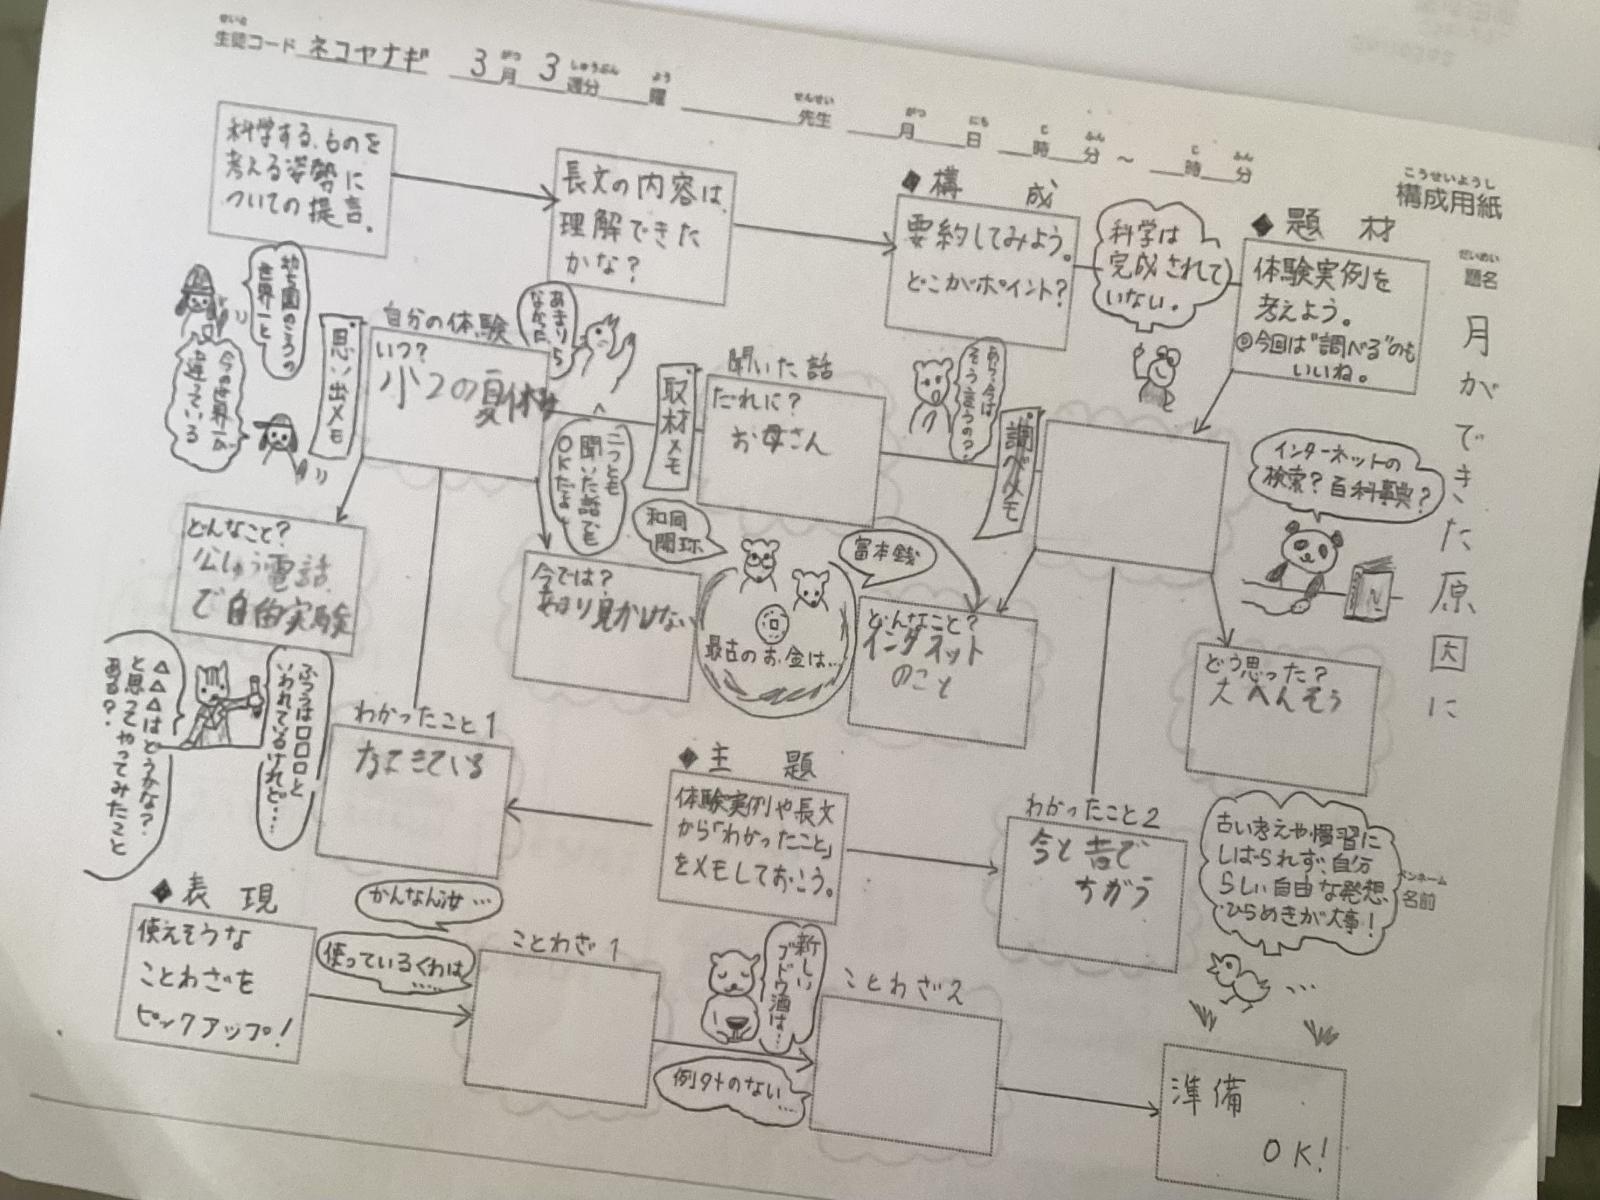 せいと
生徒コード ネコヤナギ 3月 3週分 曜 先生 月 日 時 分 ～ 時 分
がつ しゅうぶん よう せんせい がつ にち じ ふん じ ふん
こうせいようし
構成用紙
だいめい
題名
月ができた原因に
因 大
ペンネーム
名前
科学する、ものを
考える姿勢に
ついての提言。
長文の内容は、
理解できた
かな？
◆構 成
要約してみよう。
どこがポイント？
科学は
完成されて
いない。
◆題 材
体験実例を
考えよう。
◎今回は“調べる”のも
いいね。
幼ち園のころの
世界一と
今の世界一が
違っている
思い出メモ
自分の体験
いつ？
小2の夏休み
二つとも
聞いた話でも
OKだよ
取材メモ
聞いた話
だれに？
お母さん
あら、今は
そう言うの？
調べメモ
インターネットの
検索？百科事典？
どんなこと？
公しゅう電話
で自的実験
今では？
あまり見かけない
和同
開珎
富本銭
最古のお金は…
どんなこと？
インタネット
のこと
どう思った？
大へんそう
ふつうは□□□と
いわれているけれど…
△△△はどうかな？
と思ってやってみたこと
ある？
わかったこと1
◆主 題
体験実例や長文
から「わかったこと」
をメモしておこう。
わかったこと2
今と昔で
ちがう
古い考えや慣習に
しばられず、自分
らしい自由な発想、
ひらめきが大事！
◆表 現
使えそうな
ことわざを
ピックアップ！
かんなん汝…
使っているくわは
……
ことわざ1
新しい
ブドウ酒は…
例外のない
…
ことわざ2
準備
OK！